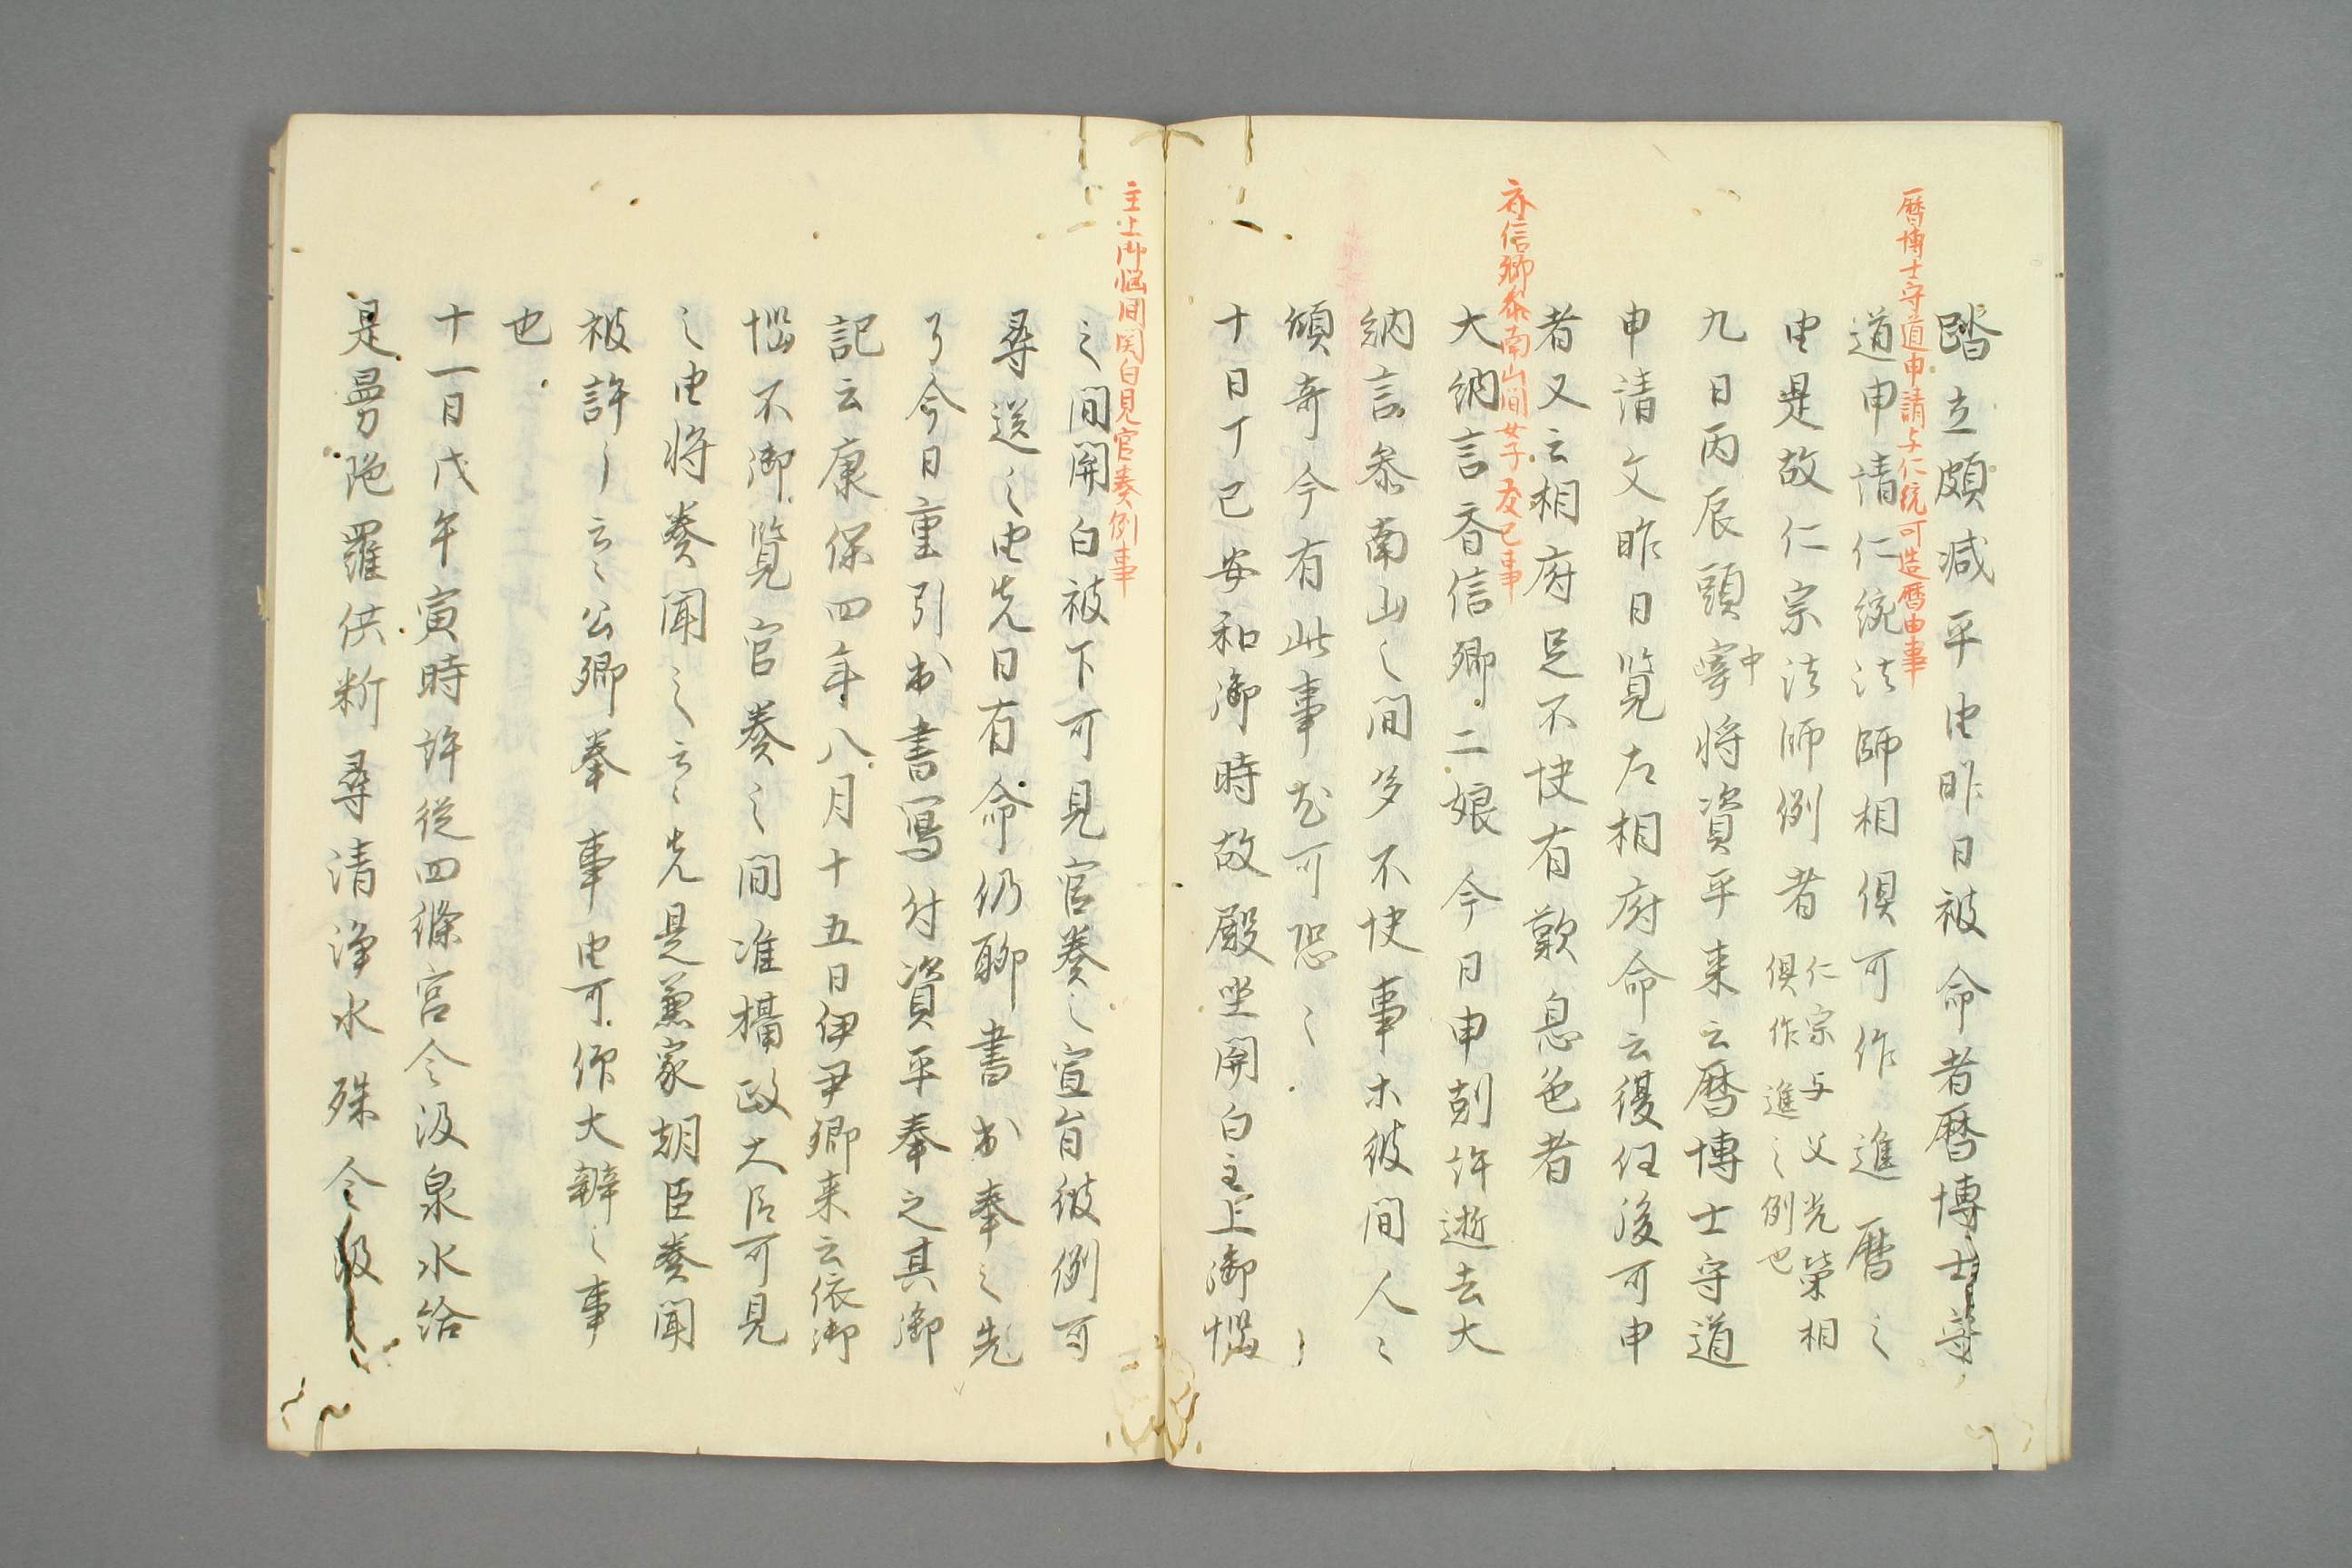 曆博士守道申請与仁統可造曆由事
踏立頗減平由昨日被命者曆博士守
道申請仁統法師相俱可作進曆之
由是故仁宗法師例者
仁宗与父光榮相
俱作進之例也
九日丙辰頭中将資平来云曆博士守道
申請文昨日覧左相府命云復任後可申
者又云相府足不快有歎息色者
斉信卿參南山間女子夭亡事
大納言斉信卿二娘今日申剋許逝去大
納言參南山之間多不快事木彼間人々
傾奇今有此事尤可恐々々
十日丁巳安和御時故殿坐関白主上御悩
主上御悩間関白見官奏例事
之間関白被下可見官奏之宣旨彼例可
尋送之由先日有命仍聊書出奉之先
了今日重引出書寫付資平奉之其御
記云康保四年八月十五日伊尹卿来云依御
悩不御覧官奏之間准攝政大臣可見
之由将奏聞之云々先是兼家朝臣奏聞
被許了云々公卿挙事由可仰大辨之事
也
十一日戊午寅時許従四條宮令汲泉水給
是曼陀羅供断尋清浄水殊令汲